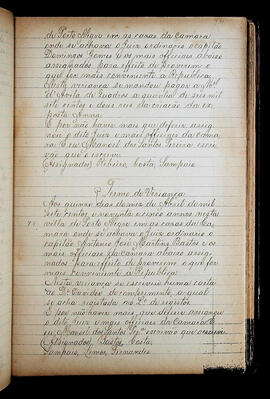 de Porto Alegre em as casas da Camara
onde se achava o Juiz ordinario o capitão
Domingos Gomes e os mais officiaes abaixo
assignados para effeito de proverem o
que for mais conveniente a Republica
Nesta vriança se mandou pagar a
de a quantia de seis mil
sete centos e deus reis da criação da ex
posta Anna
E por não haver mais que deferir assig
nou o dito Juiz e mais officiaes da Cama
ra E eu Manoel dos Santos Pereira escri
vão que o escrevi
(Assignados) Ribeiro, Costa, Sampaio
Termo de Veriança
Aos quinze dias do mez de Abril de mil
sete centos e noventa e cinco annos nesta
villa de Porto Alegre em as casas da Ca
mara onde se achava o Juiz ordinario o
capitão Antonio José Martins Bastos e os
mais officiaes da Camara abaixo assig
nados para effeito de proverem o que for
mais conveniente a Republica
Nesta vriança se escreveu huma carta
ao de comprimento, a qual
se acha registada no L.º de registos
E por não haver mais que deferir assignou
o dito Juiz e mais officiaes da Camara E
eu Manoel dos Santos Per.ª escrivão que o escrevi
(Assignados) Bastos, Costa,
Sampaio, Lemos, Fernandes